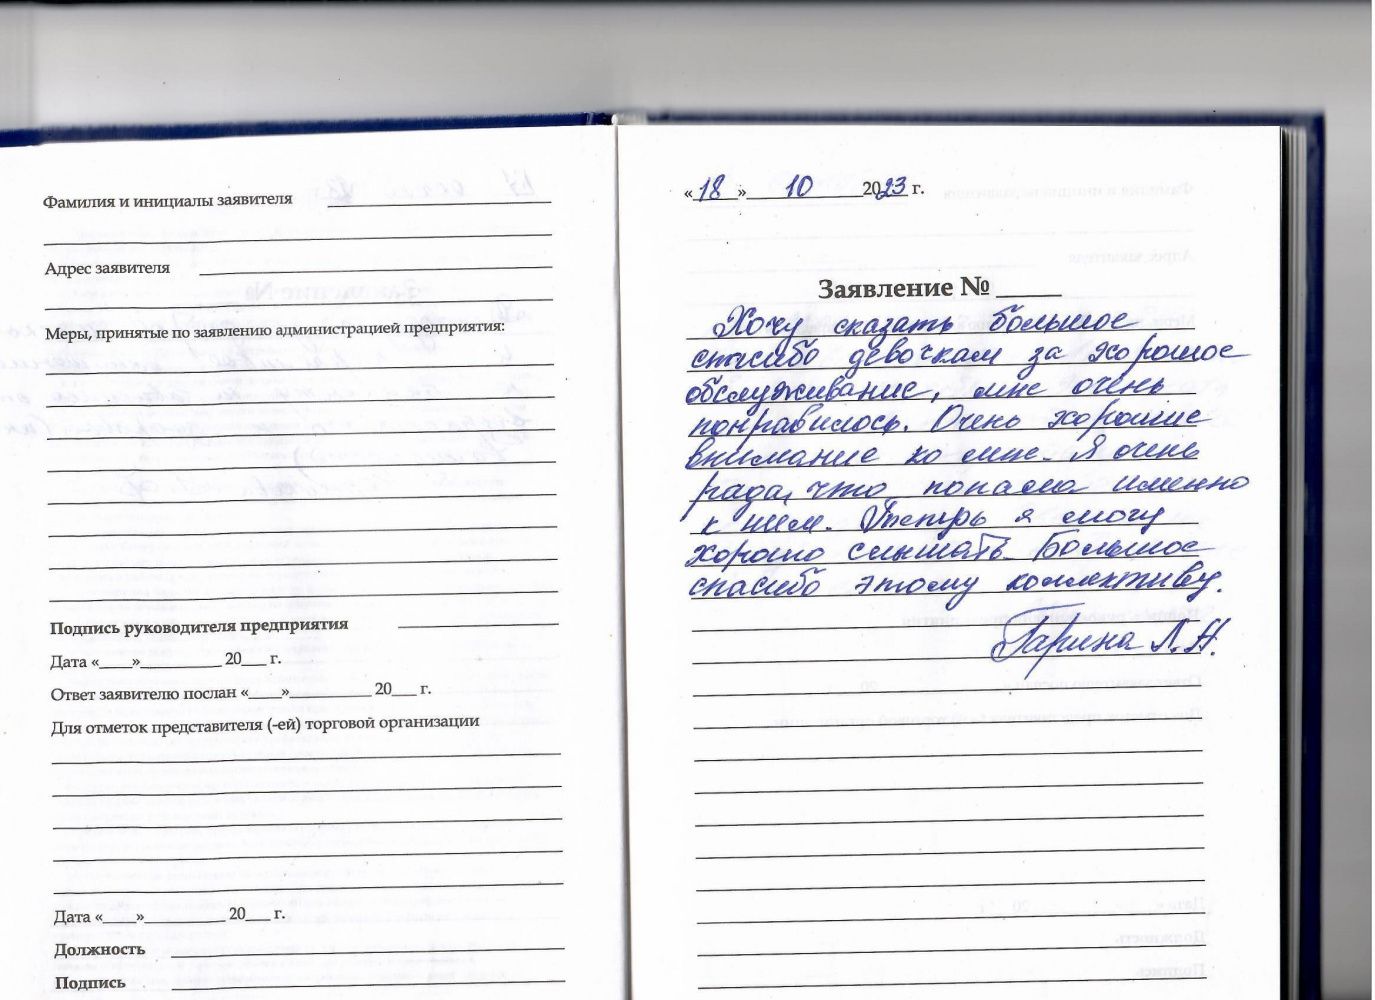 Фамилия и инициалы заявителя
Адрес заявителя
Меры, принятые по заявлению администрацией предприятия:
Подпись руководителя предприятия
Дата «____»__________ 20___ г.
Ответ заявителю послан «____»__________ 20___ г.
Для отметок представителя (-ей) торговой организации
Дата «____»__________ 20___ г.
Должность
Подпись
«18» 10 2023 г.
Заявление № _____
Хочу сказать большое
спасибо девочкам за хорошое
обслуживание, мне очень
понравилось. Очень хорошие
внимание ко мне. Я очень
рада, что попала именно
к ним. Теперь я могу
хорошо слышать. Большое
спасибо этому коллективу.
Гарина Л.Н.